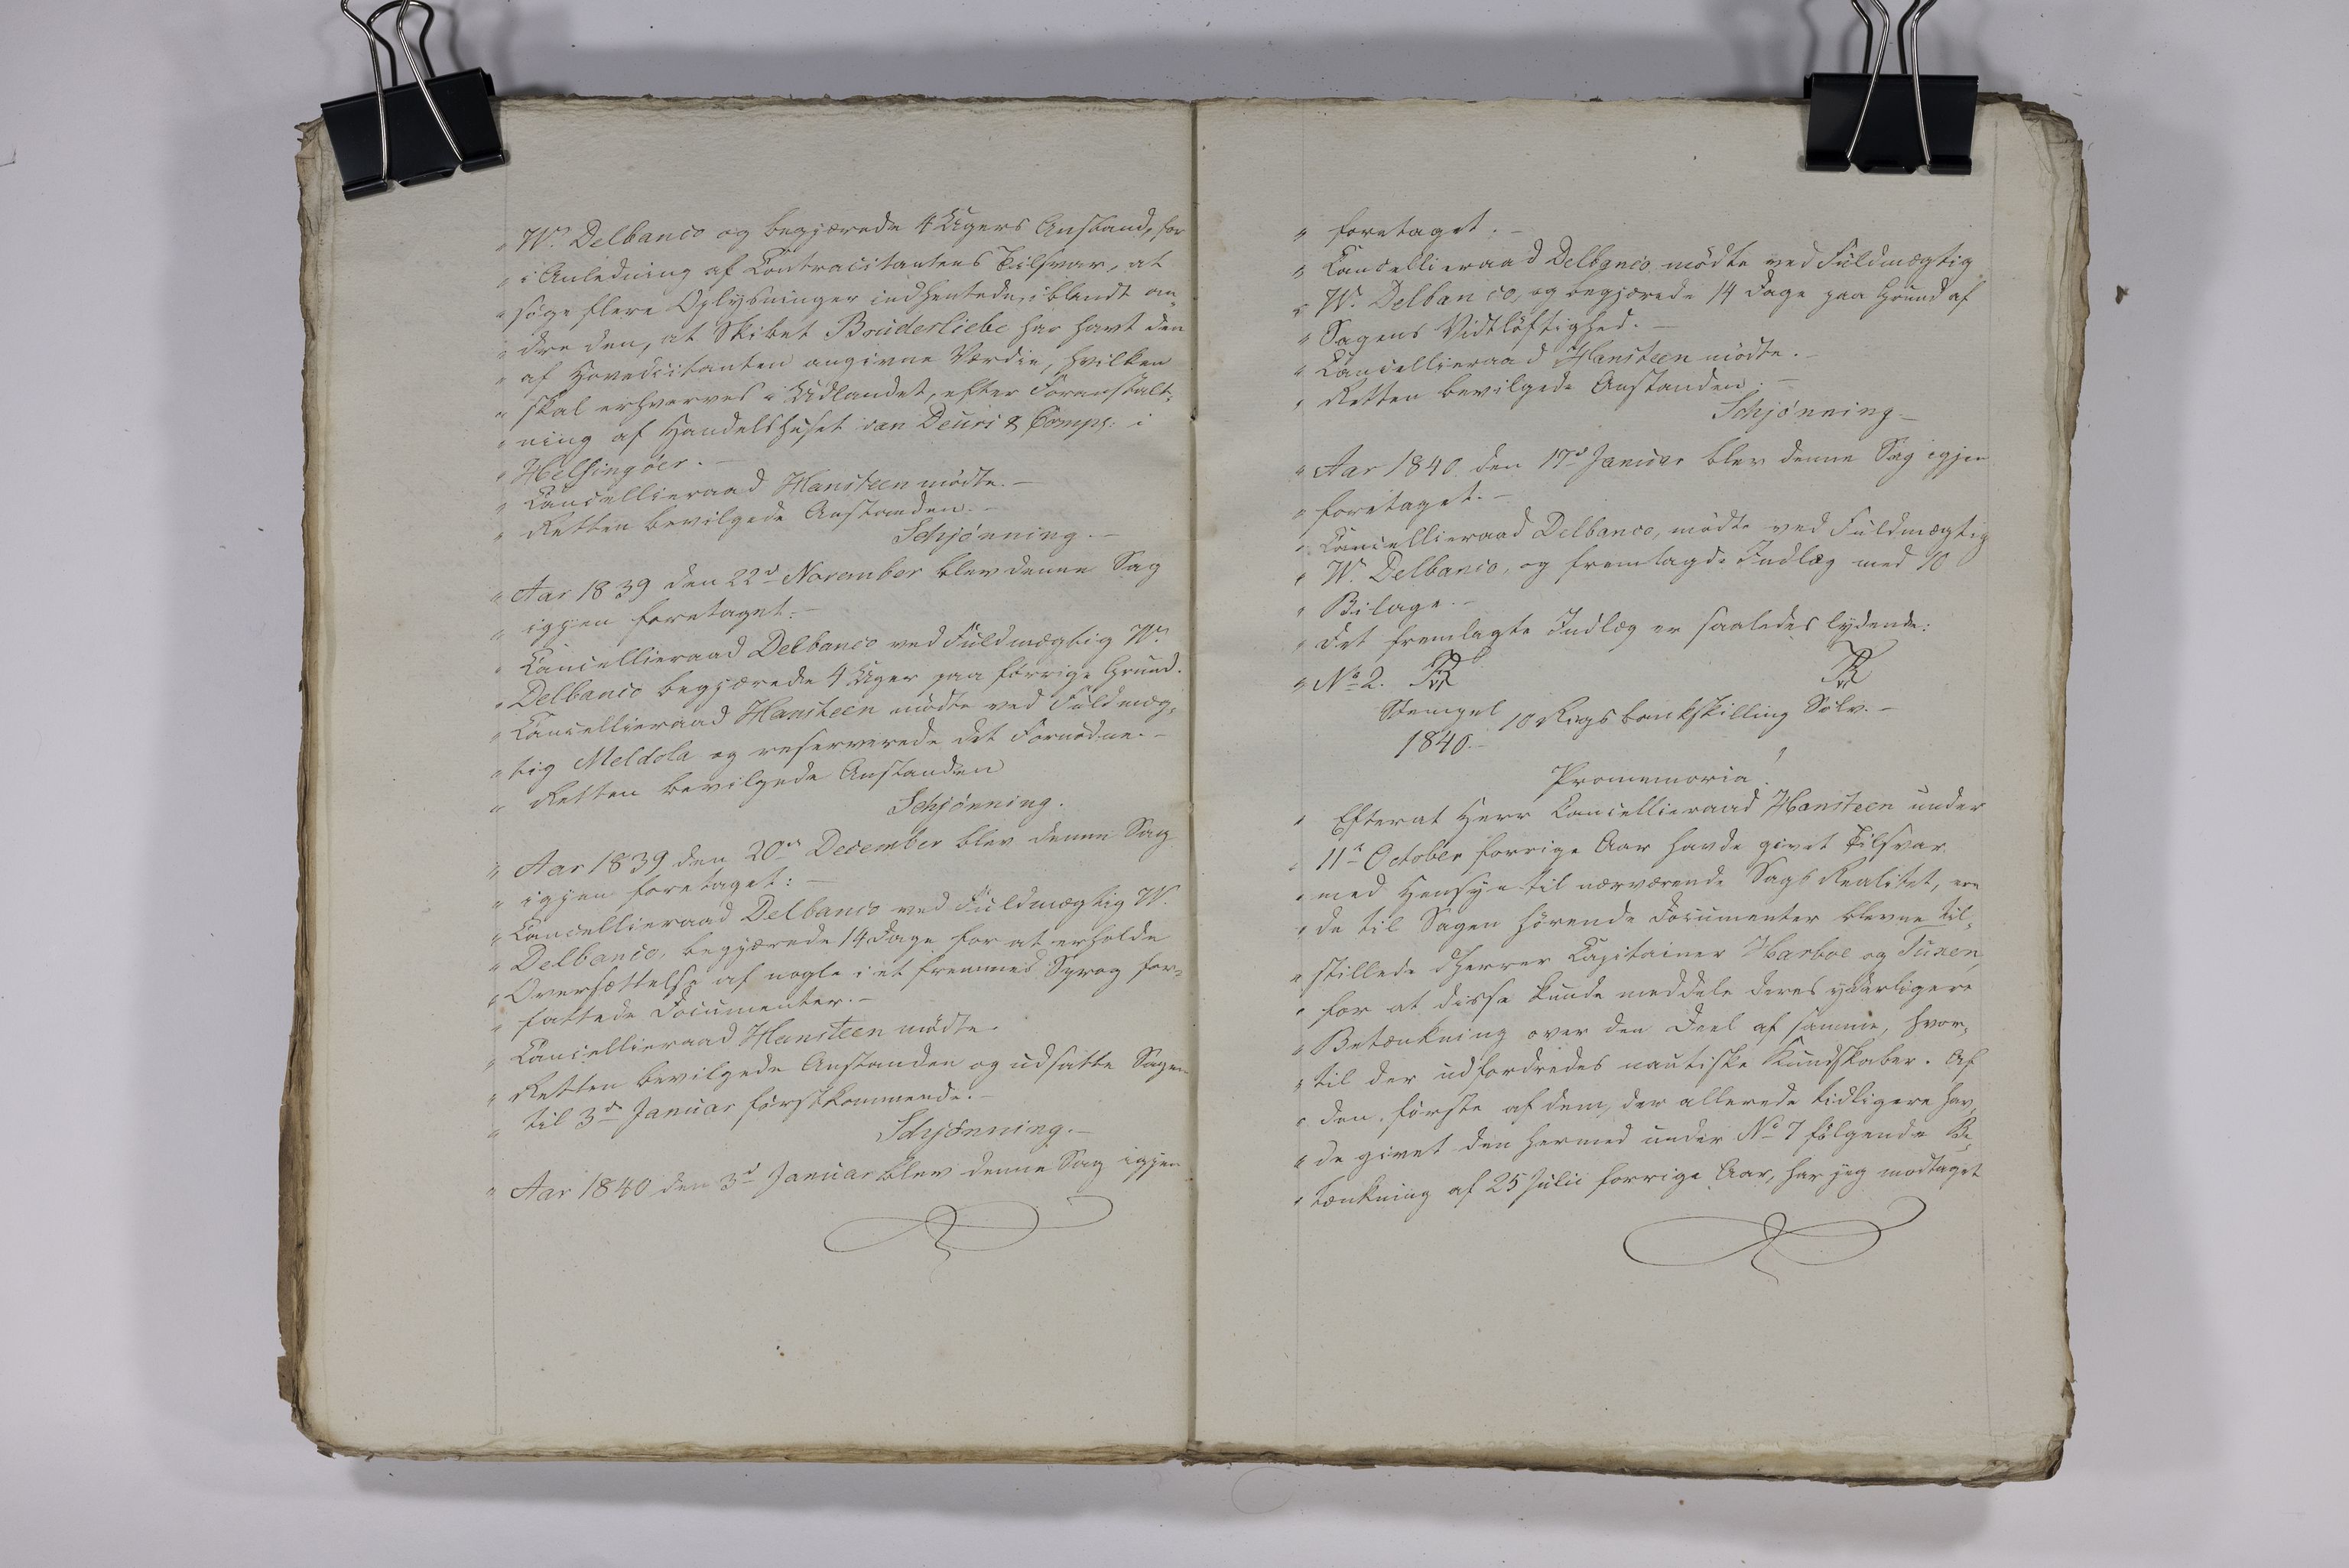 " W. Delbanco og begjærede 4 Ugers Anstand, for
" i Anledning af Contracitantens Tilsvar, at
" søge flere Oplysninger indhentede, iblandt an-
" dre den, at Skibet Bruderliebe har havt den
" af Hovedcitanten angivne Værdie, hvilken
" skal erhverves i Udlandet, efter Foranstalt-
" ning af Handelshuset van Deurs & Comp: i
" Helsingøer. -
" Cancellieraad Hansteen mødte. -
" Retten bevilgede Anstanden. -
Schjønning. -
" Aar 1839 den 22d November blev denne Sag
" igjen foretaget: -
" Cancellieraad Delbanco ved Fuldmægtig W.
" Delbanco begjærede 4 Uger paa forrige Grund.
" Cancellieraad Hansteen mødte ved Fuldmæg-
" tig Meldola og reserverede det Fornødne. -
" Retten bevilgede Anstanden
Schjønning.
" Aar 1839 den 20de December blev denne Sag
" igjen foretaget: -
" Cancellieraad Delbanco ved Fuldmægtig W.
" Delbanco, begjærede 14 Dage for at erholde
" Oversættelse af nogle i et fremmed Sprog for-
" fattede Documenter. -
" Cancellieraad Hansteen mødte.
" Retten bevilgede Anstanden og udsatte Sagen
" til 3de Januar førstkommende. -
Schjønning. -
" Aar 1840 den 3d Januar blev denne Sag igjen
" foretaget. -
" Cancellieraad Delbanco mødte ved Fuldmægtig
" W. Delbanco, og begjærede 14 Dage paa Grund af
" Sagens Vidtløftighed. -
" Cancellieraad Hansteen mødte. -
" Retten bevilgede Anstanden. -
Schjønning -
" Aar 1840 den 17d Januar blev denne Sag igjen
" foretaget. -
" Cancellieraad Delbanco, mødte ved Fuldmægtig
" W. Delbanco, og fremlagde Indlæg med 10
" Bilage. -
" Det fremlagte Indlæg er saaledes lydende:
" No 2.
Stempel 10 Rigsbankskilling Sølv. -
1840. -
Promemoria!
" Efterat Herr Cancellieraad Hansteen under
" 11te October forrige Aar havde givet Tilsvar
" med Hensyn til nærværende Sags Realitet, ere
" de til Sagen hørende Documenter blevne til-
" stillede dHerrer Capitainer Harboe og Tuxen,
" for at disse kunde meddele deres yderligere
" Betænkning over den Deel af samme, hvor-
" til der udfordredes nautiske Kundskaber. Af
" den første af dem, der allerede tidligere hav-
" de givet den hermed under No 7 følgende Be-
" tænkning af 25 Julii forrige Aar, har jeg modtaget